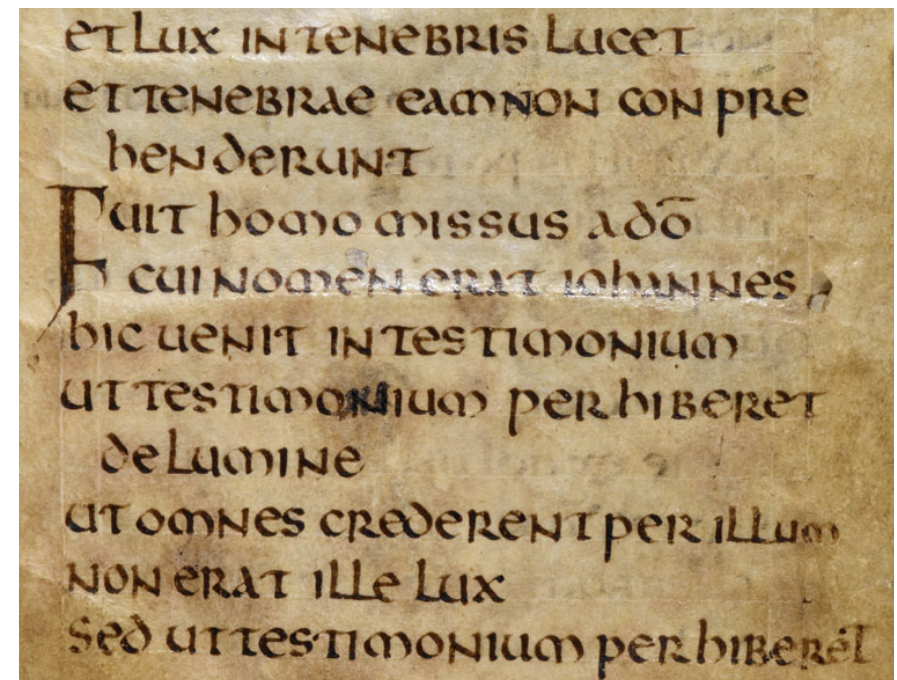 et lux in tenebris lucet
et tenebrae eam non conpre
henderunt
Fuit homo missus a dō
cui nomen erat iohannes
hic uenit in testimonium
ut testimonium perhiberet
de lumine
ut omnes crederent per illum
non erat ille lux
sed ut testimonium perhiberet